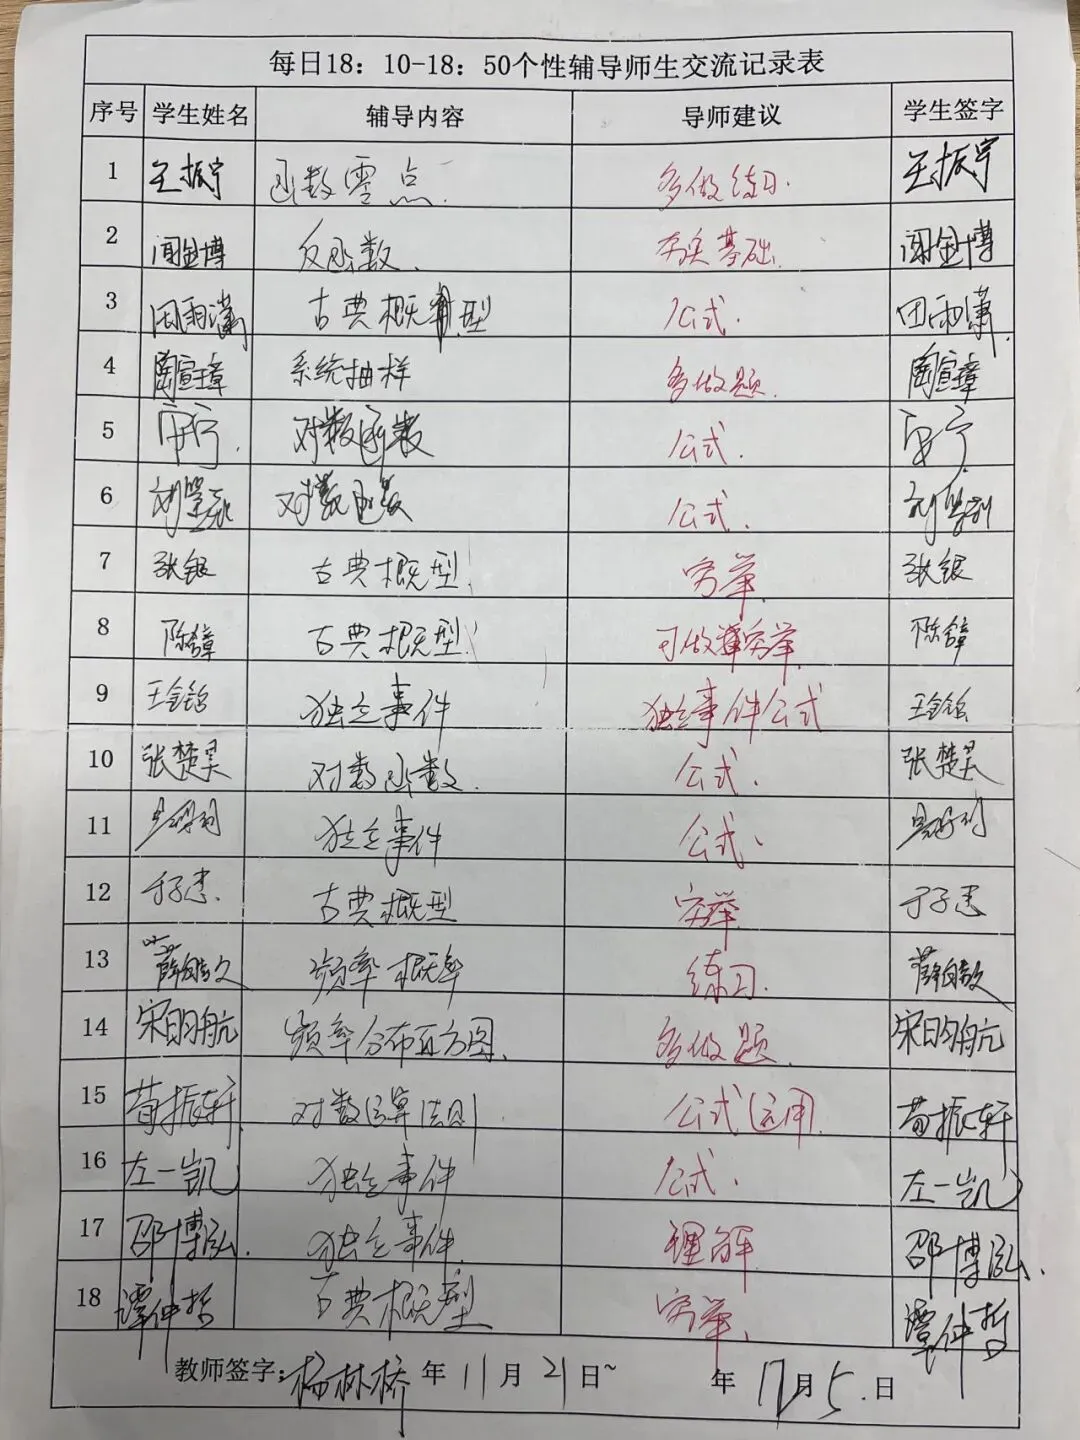 每日18：10-18：50个性辅导师生交流记录表
序号 学生姓名 辅导内容 导师建议 学生签字
1 王振宇 函数零点. 多做练习. 王振宇
2 闻金博 反函数. 夯实基础. 闻金博
3 田雨潇 古典概型 公式. 田雨潇
4 陶宣璋 系统抽样 多做题. 陶宣璋
5 对数函数 公式.
6 对数函数 公式.
7 张银 古典概型. 穷举. 张银
8 古典概型. 可做 穷举.
9 独立事件 独立事件公式
10 张楚昊 对数函数. 公式. 张楚昊
11 独立事件 公式.
12 古典概型 穷举.
13 频率 概率 练习.
14 宋昀航 频率分布直方图. 多做题. 宋昀航
15 荀振轩. 对数运算法则 公式运用. 荀振轩
16 左一凯 独立事件 公式. 左一凯
17 邵博泓. 独立事件. 理解 邵博泓.
18 谭仲哲 古典概型 穷举. 谭仲哲
教师签字:杨林桥 年 11月 21日~ 年 12月 5.日